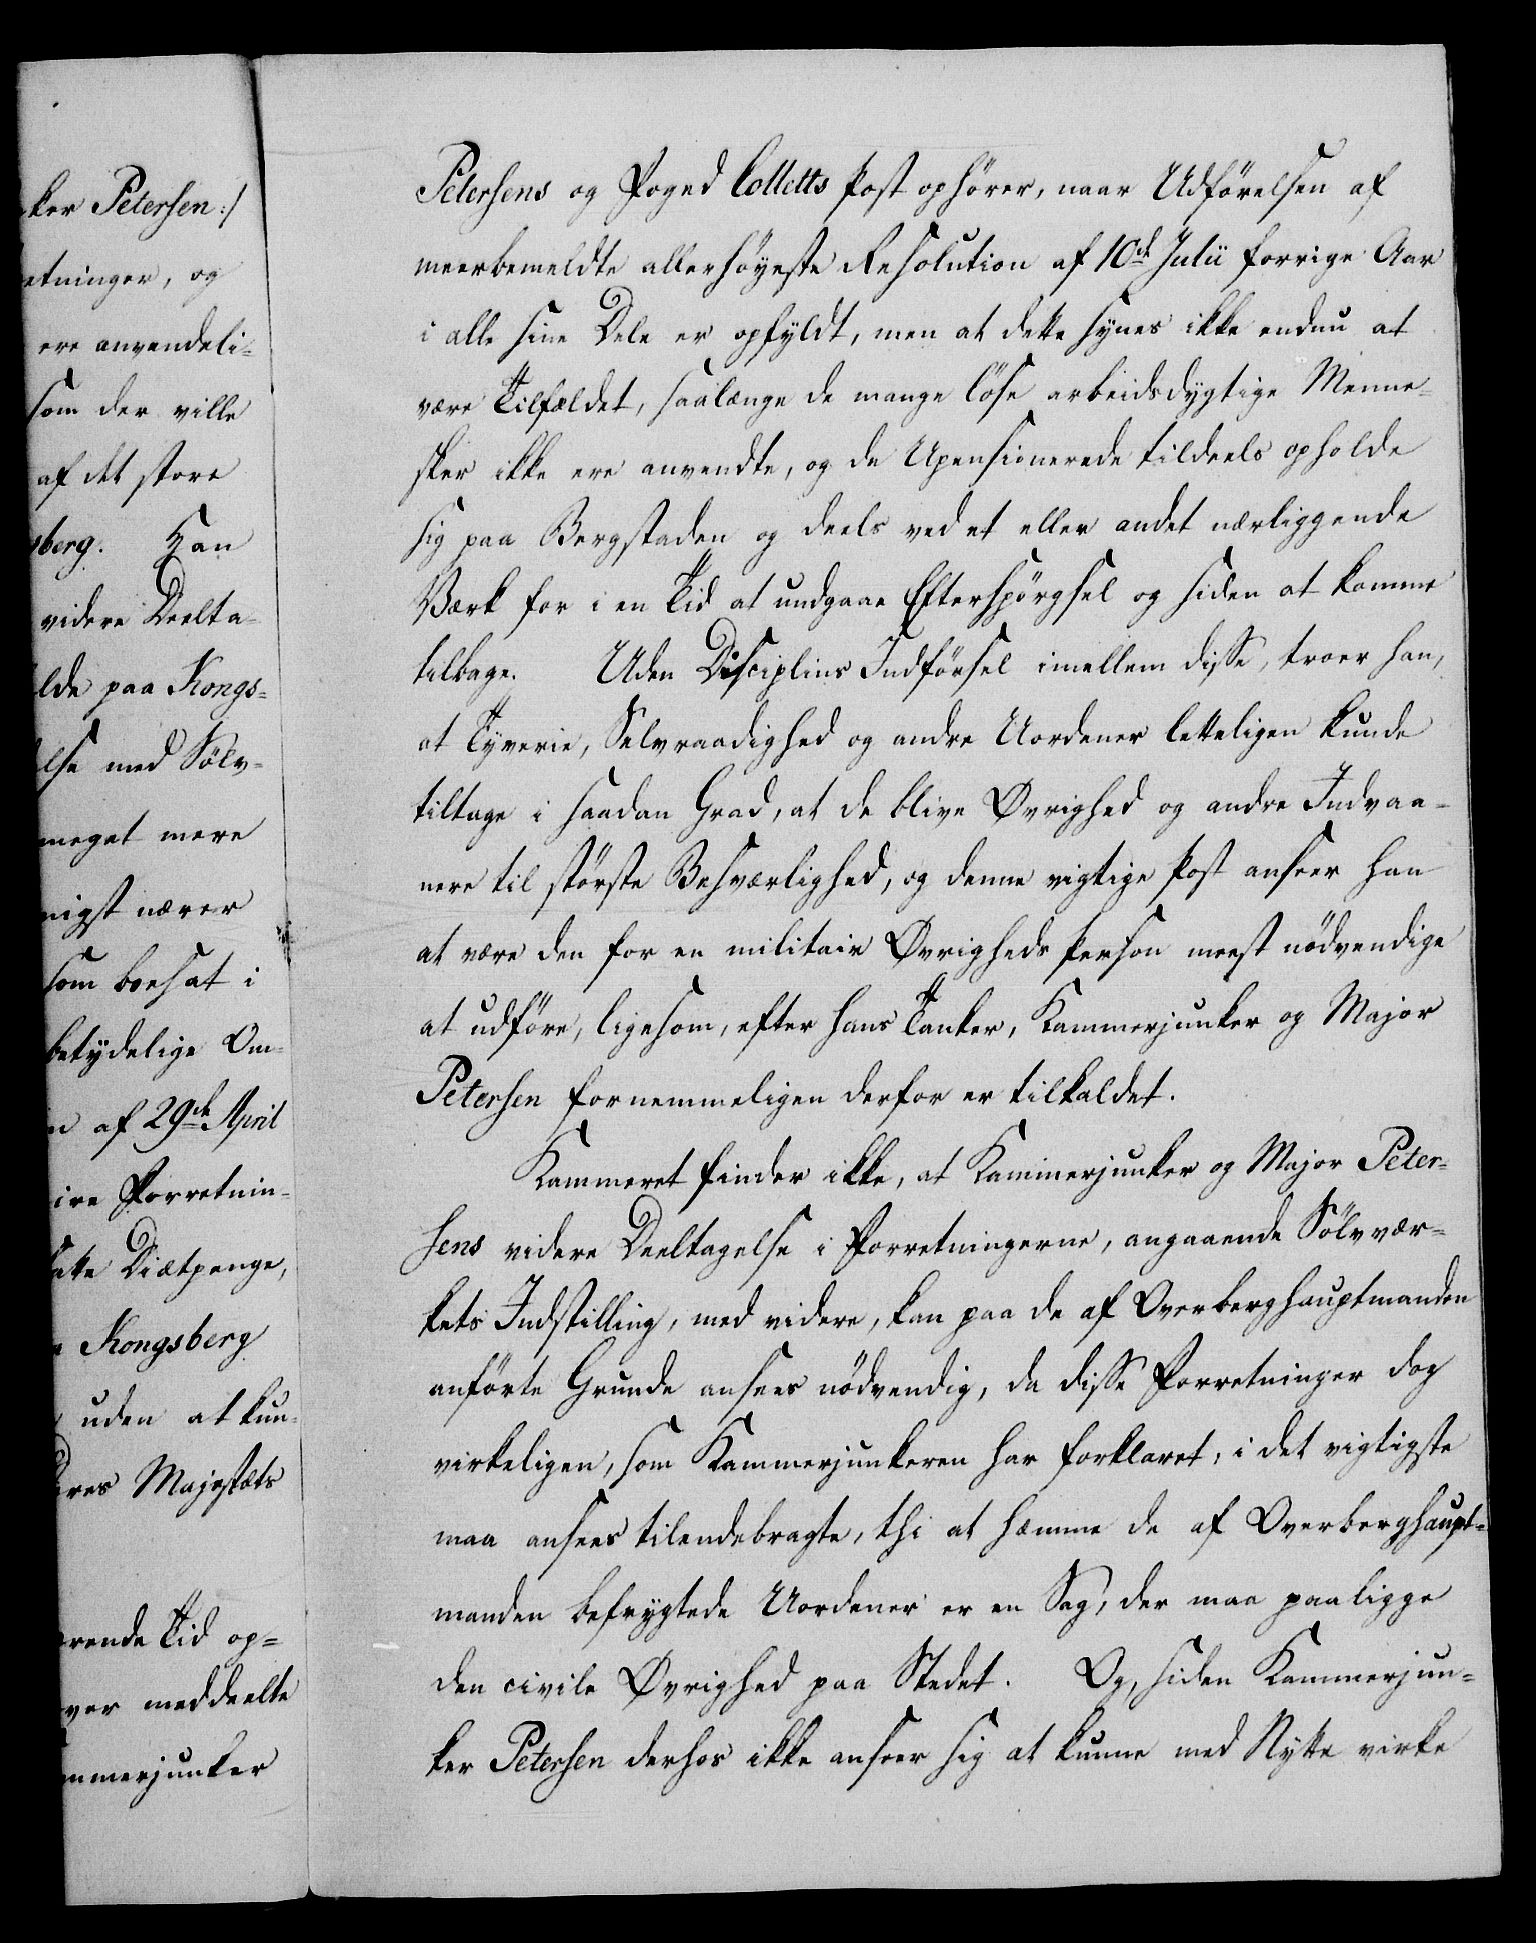 ker Petersen:/
etninger, og
ere anvendeli-
som der ville
af det store
sberg. Han
videre Deelta-
lde paa Kongs-
lse med Sølv-
meget mere
nigst nærer
som boesat i
betydelige Om-
n af 29de April
ire Forretnin-
satte Diætpenge,
Kongsberg
uden at kun-
eres Majestæts
ærende Tid op=
ver meddeelte
mmerjunker
Petersens og Foged Colletts Post ophører, naar Udførelsen af
meerbemeldte allerhöyeste Resolution af 10de Julii forrige Aar
i alle sine Dele er opfyldt, men at dette synes ikke endnu at
være Tilfældet, saalænge de mange löse arbeidsdygtige Menne-
sker ikke ere anvendte, og de Upensionerede tildeels opholde
sig paa Bergstaden og deels ved et eller andet nærliggende
Værk for i en Tid at undgaae Efterspörgsel og siden at komme
tilbage. Uden Disciplins Indförsel imellem disse, troer han,
at Tyverie, Selvraadighed og andre Uordener letteligen kunde
tiltage i saadan Grad, at de blive Øvrighed og andre Indvaa-
nere til störste Besværlighed, og denne vigtige Post anseer han
at være den for en militair Øvrigheds Person meest nödvendige
at udföre, ligesom, efter hans Tanker, Kammerjunker og Major
Petersen fornemmeligen derfor er tilkaldet.
Kammeret finder ikke, at Kammerjunker og Major Peter-
sens videre Deeltagelse i Forretningerne, angaaende Sölvvær-
kets Indstilling, med videre, kan paa de af Overberghauptmanden
anförte Grunde ansees nödvendig, da disse Forretninger dog
virkeligen, som Kammerjunkeren har forklaret, i det vigtigste
maa ansees tilendebragte, thi at hæmme de af Overberghaupt=
manden befrygtede Uordener er en Sag, der maa paaligge
den civile Øvrighed paa Stedet. Og, siden Kammerjun-
ker Petersen derhos ikke anseer sig at kunne med Nytte virke